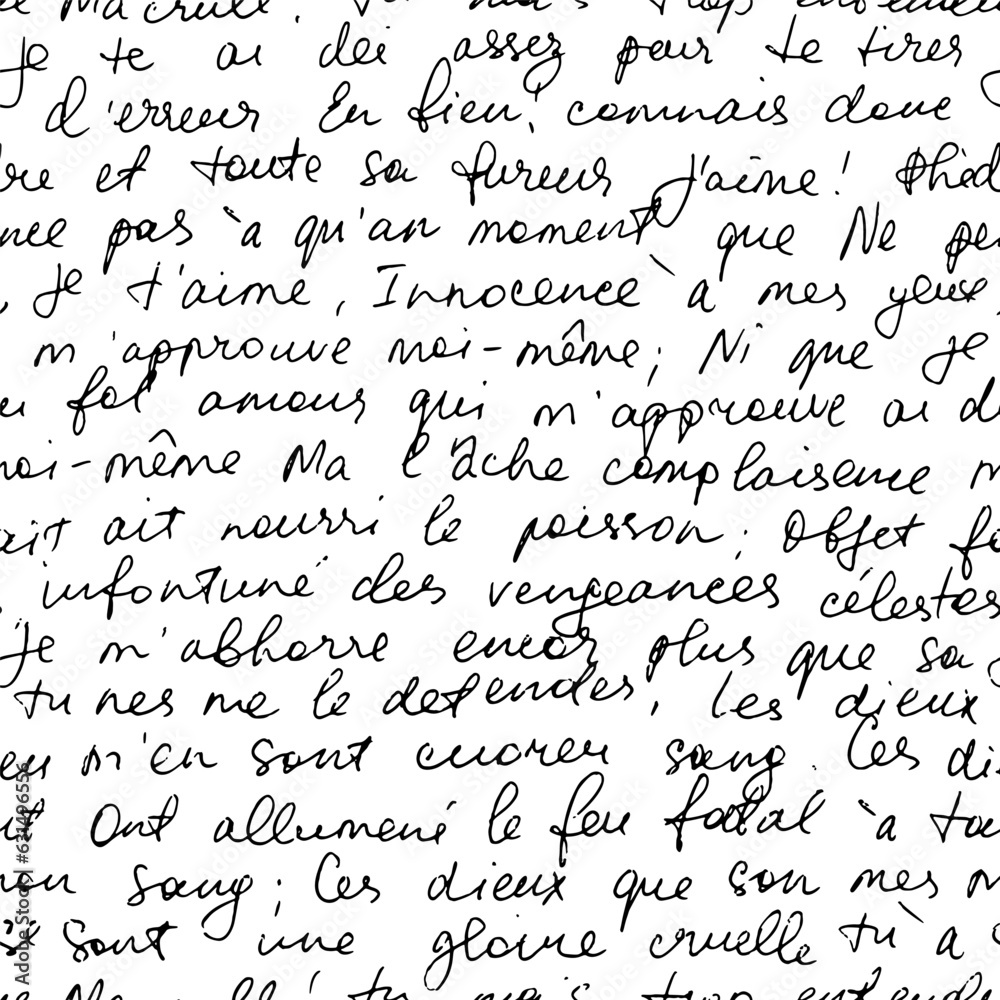 Je te ai dei assez pour te tirer
d'erreur En bien! connais donc
et toute sa fureur J'aime! Phèd
pas à qu'an moment que Ne pe
Je t'aime, Innocence à mes yeux
m'approuve moi-même; Ni que je
fol amour qui m'approuve ai d
moi-même Ma l'âche complaisence m
ait ait nourri le poisson; Objet fo
infortuné des vengeances célestes
Je m'abhorre encor plus que sa
tu nes me le detendes, Les dieux
m'en sont sang. Ces di
Ont allumené le feu fatal à to
sang; Ces dieux que son mes m
Sont une gloire cruelle tu à
Adobe Stock | #631496556